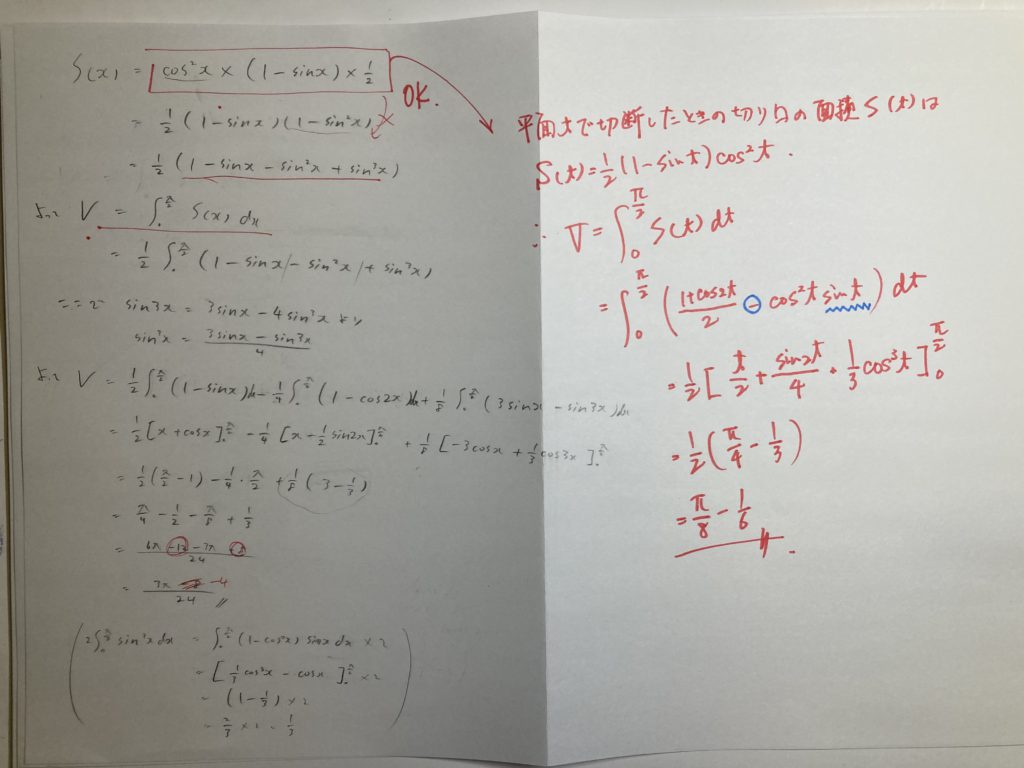 S(x) = cos²x × (1 - sinx) × 1/2
= 1/2 (1 - sinx)(1 - sin²x)
= 1/2 (1 - sinx - sin²x + sin³x)
よって V = ∫₀^{π/2} S(x) dx
= 1/2 ∫₀^{π/2} (1 - sinx - sin²x + sin³x)
ここで sin3x = 3sinx - 4sin³x より
sin³x = (3sinx - sin3x)/4
よって V = 1/2 ∫₀^{π/2} (1 - sinx)dx - 1/4 ∫₀^{π/2} (1 - cos2x)dx + 1/8 ∫₀^{π/2} (3sinx - sin3x)dx
= 1/2 [x + cosx]₀^{π/2} - 1/4 [x - 1/2 sin2x]₀^{π/2} + 1/8 [-3cosx + 1/3 cos3x]₀^{π/2}
= 1/2 (π/2 - 1) - 1/4 · π/2 + 1/8 (3 - 1/3)
= π/4 - 1/2 - π/8 + 1/3
= (6π - 12 - 3π)/24
= (3π - 4)/24
= ∫₀^{π/2} (1 - cos²x) sinx dx × 2
= [1/3 cos³x - cosx]₀^{π/2} × 2
= (1 - 1/3) × 2
OK.
平面tで切断したときの切り口の面積S(t)は
S(t) = 1/2 (1 - sint) cos²t.
∴ V = ∫₀^{π/2} S(t) dt
= ∫₀^{π/2} ((1 + cos2t)/2 - cos²t sint) dt
= 1/2 [t/2 + sin2t/4 + 1/3 cos³t]₀^{π/2}
= 1/2 (π/4 - 1/3)
= π/8 - 1/6